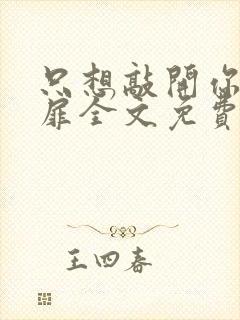 只想敲開你
扉全文免費
王四春